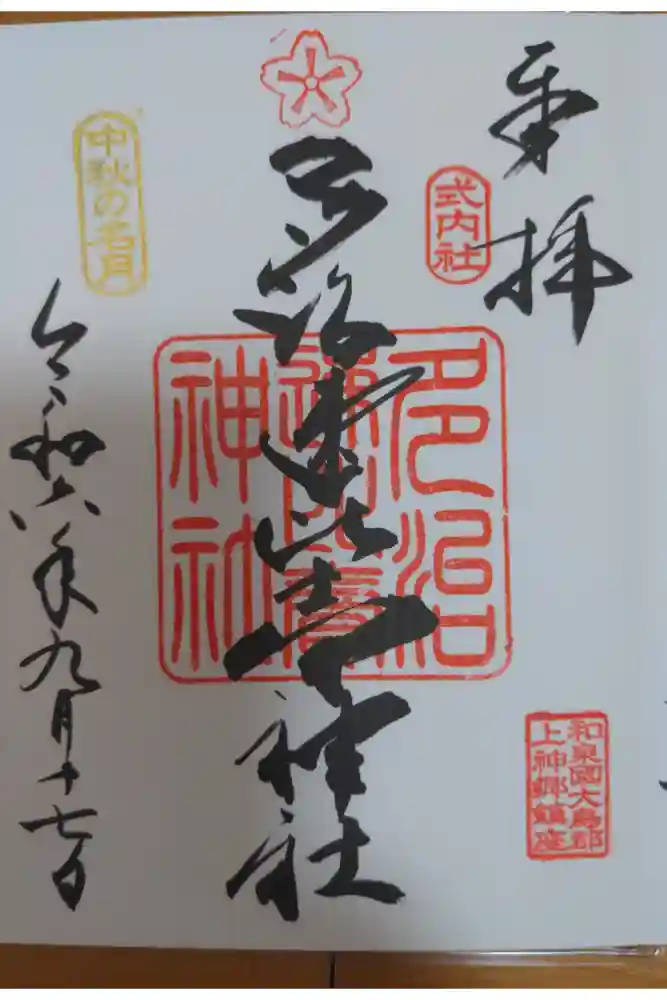 奉拝
式内社
多治速比売神社
多治
速比賣
神社
和泉國大鳥郡
上神郷鎮座
中秋の名月
令和六年九月十七日